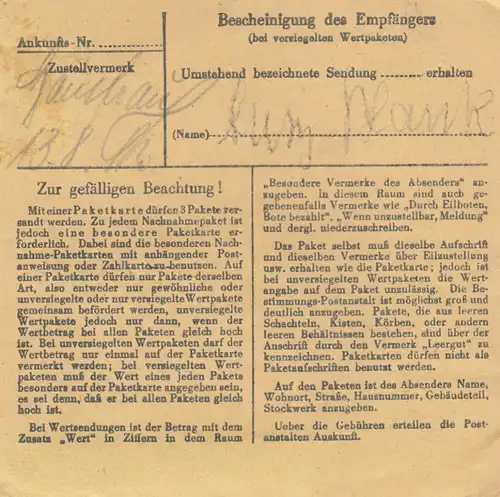 Ankunfts-Nr.
Zustellvermerk
Hausfrau
13.8.
Bescheinigung des Empfängers
(bei versiegelten Wertpaketen)
Umstehend bezeichnete Sendung ........... erhalten
(Name)
Zur gefälligen Beachtung!
Mit einer Paketkarte dürfen 3 Pakete ver-
sandt werden. Zu jedem Nachnahmepaket ist
jedoch eine besondere Paketkarte er-
forderlich. Dabei sind die besonderen Nach-
nahme-Paketkarten mit anhängender Post-
anweisung oder Zahlkarte zu benutzen. Auf
einer Paketkarte dürfen nur Pakete derselben
Art, also entweder nur gewöhnliche oder
unversiegelte oder nur versiegelte Wertpakete
gemeinsam befördert werden, unversiegelte
Wertpakete jedoch nur dann, wenn der
Wertbetrag bei allen Paketen gleich hoch
ist. Bei unversiegelten Wertpaketen darf der
Wertbetrag nur einmal auf der Paketkarte
vermerkt werden; bei versiegelten Wert-
paketen muß der Wert eines jeden Pakets
besonders auf der Paketkarte angegeben sein,
es sei denn, daß er bei allen Paketen gleich
hoch ist.
Bei Wertsendungen ist der Betrag mit dem
Zusatz „Wert" in Ziffern in dem Raum
„Besondere Vermerke des Absenders" an-
zugeben. In diesem Raum sind auch ge-
gebenenfalls Vermerke wie „Durch Eilboten,
Bote bezahlt", „Wenn unzustellbar, Meldung"
und dergl. niederzuschreiben.
Das Paket selbst muß dieselbe Aufschrift
und dieselben Vermerke über Eilzustellung
usw. erhalten wie die Paketkarte; jedoch ist
bei unversiegelten Wertpaketen die Wert-
angabe auf dem Paket unzulässig. Die Be-
stimmungs-Postanstalt ist möglichst groß und
deutlich anzugeben. Pakete, die aus leeren
Schachteln, Kisten, Körben, oder andern
leeren Behältnissen bestehen, sind über der
Anschrift durch den Vermerk „Leergut" zu
kennzeichnen. Paketkarten dürfen nicht als
Paketaufschriften benutzt werden.
Auf den Paketen ist des Absenders Name,
Wohnort, Straße, Hausnummer, Gebäudeteil,
Stockwerk anzugeben.
Ueber die Gebühren erteilen die Post-
anstalten Auskunft.